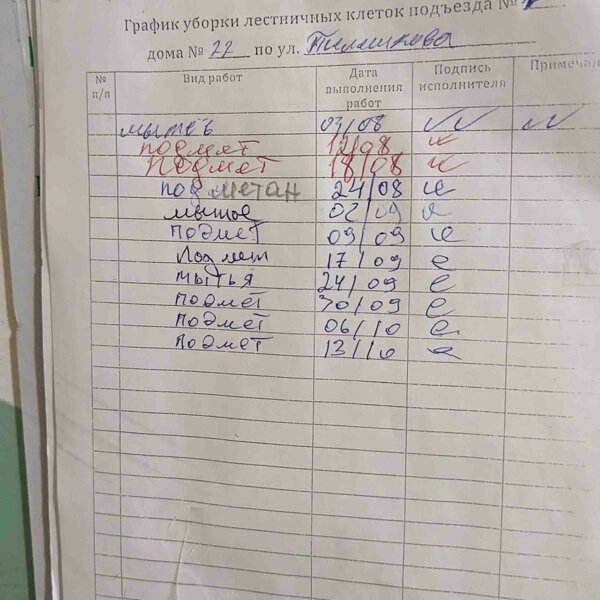 График уборки лестничных клеток подъезда №
дома № 22 по ул. Пилишкова
№ п/п Вид работ Дата выполнения работ Подпись исполнителя Примечан
мытьё 03/08
подмет 12/08
Подмет 18/08
подметан 24/08
мытьё 02/09
подмет 09/09
Подмет 17/09
мытья 24/09
подмёт 30/09
подмёт 06/10
подмет 13/10